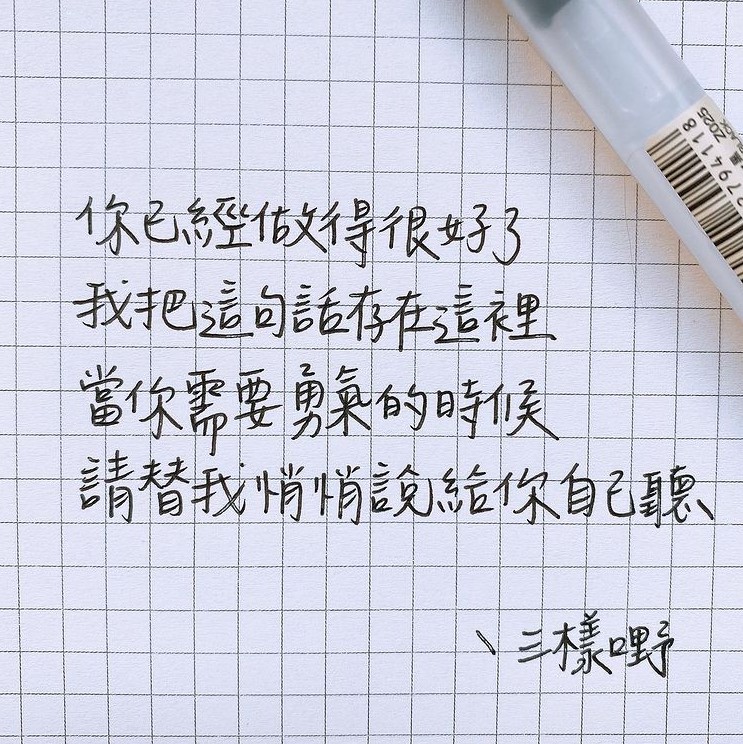 你已經做得很好了
我把這句話存在這裡
當你需要勇氣的時候
請替我悄悄說給你自己聽
、三樣哩野
2794118
Z025